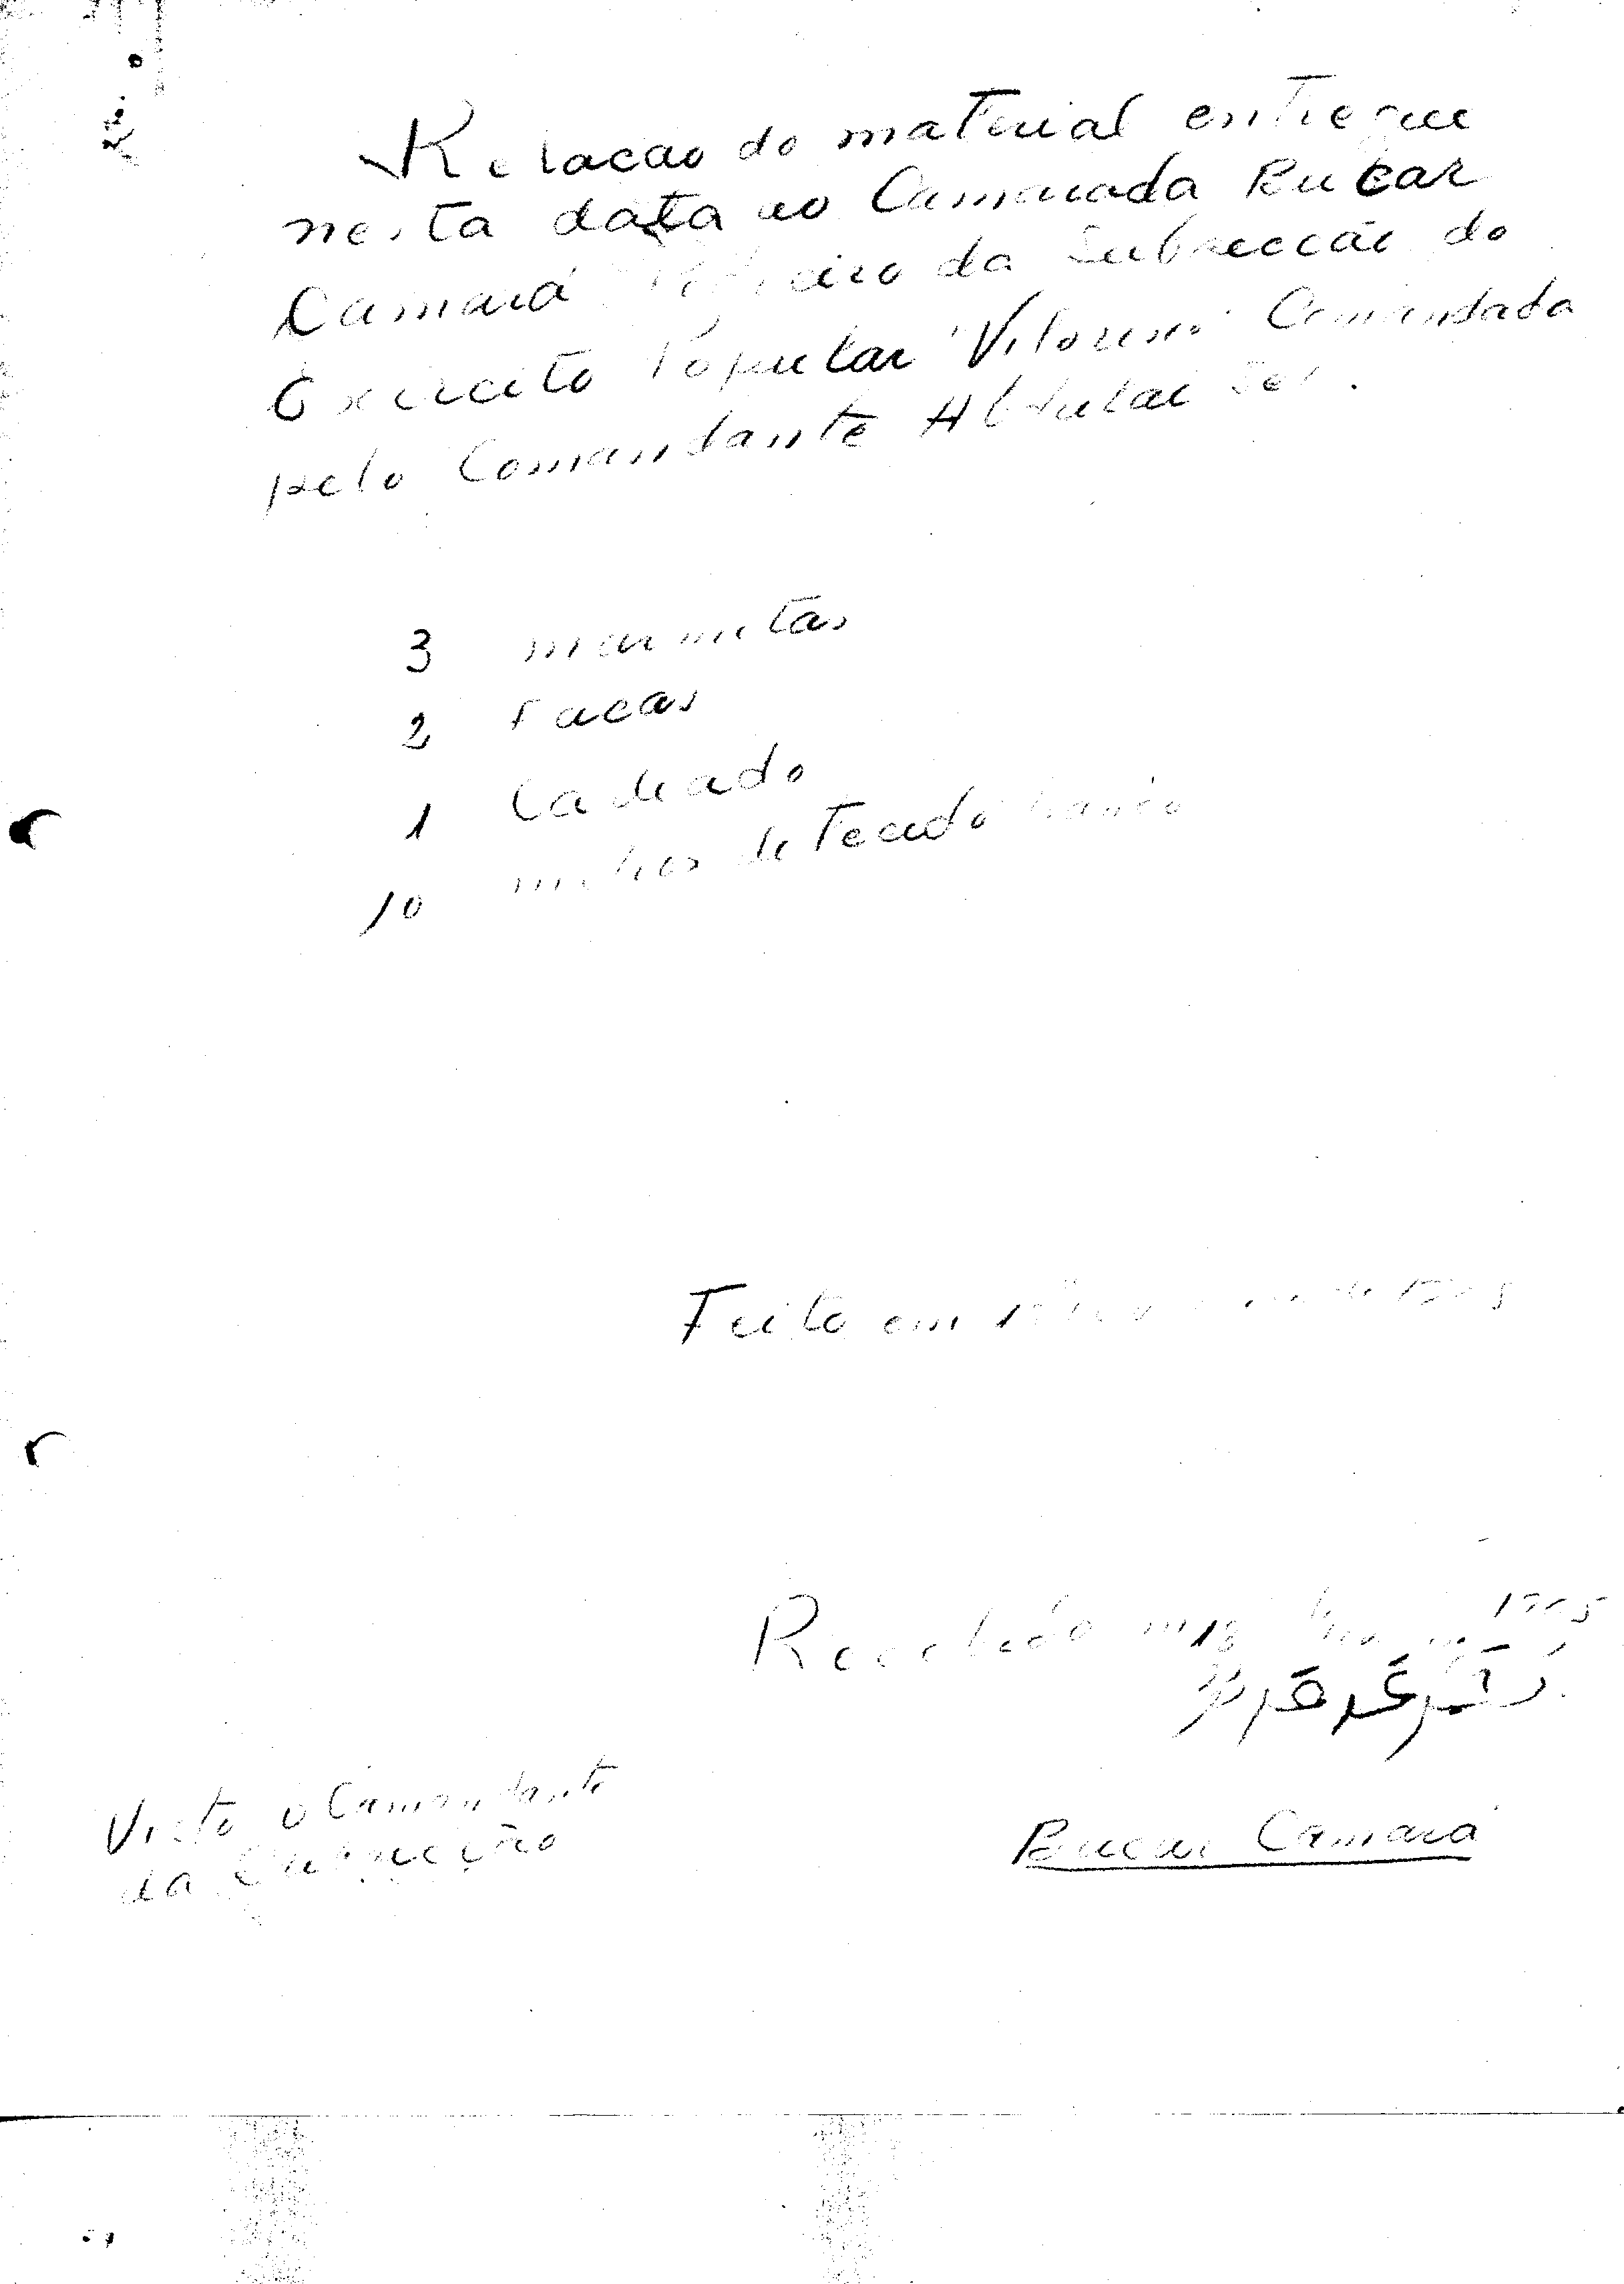 Relacao do material entregue
nesta data ao Camarada Bucar
Camará da Subseccão do
Exercito Popular "Vitorino" Comandada
pelo Comandante Abdulai Sei.
3 marmitas
2 Facas
1 Cadeado
10 metros de Tecido branco
Feito em
Recebido em 18 1965
Bucar Camará
Visto o Comandante
da Subsecção